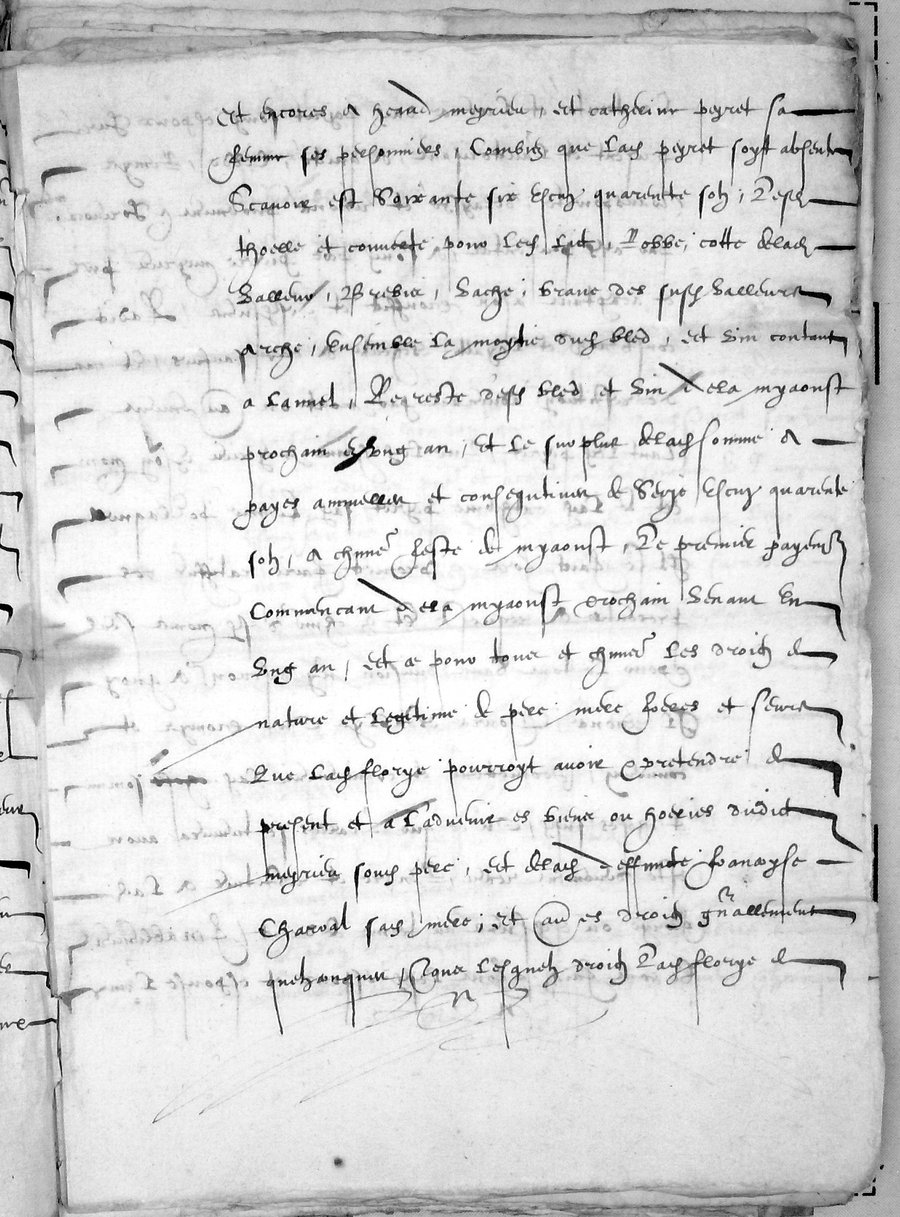 Et encores a Jean meyrieu, et catherine peyret sa
femme ses personniers, Combien que lad peyret soyt absente
Scavoir est Soixante six escuz quarente solz, Lesd
thoelle et couverte pour lesd lictz, Robbe, cotte delad
Valleur, Brebis, Vache, brave des susd Valleurs
Arche, Ensemble la moytie dud bled, et vin contant
a Lannel, Le reste desd bled et vin de la myaoust
prochain en ung an, Et le surplus delad somme a
payes annuelles et consequtives de Seize escuz quarente
solz, a chune feste de myaoust, Le premier payement
Commencant de la myaoust prochain Venant En
Ung an, et ce pour toues et chunes les droitz de
nature et legitime de pere mere freres et seurs
Que lad florye pourroyt avoir et pretendre de
present et a l'advenir es biens ou hoeries dudict
meyrieu sond pere, et delad deffuncte francoyse
Charval sad mere, et en es droitz gnallement
quelzconques, Pour lesquelz droitz Lad florye de